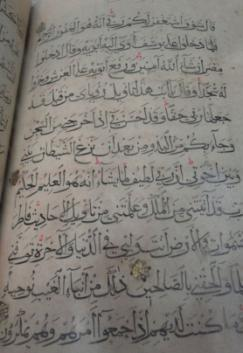 قال سوف استغفر لكم ربي انه هو الغفور الرحيم
فلما دخلوا على يوسف آوى اليه ابويه وقال ادخلوا
مصر ان شاء الله آمنين ورفع ابويه على العرش وخروا
له سجدا وقال يا ابت هذا تاويل رؤياي من قبل قد
جعلها ربي حقا وقد احسن بي اذ اخرجني من السجن
وجاء بكم من البدو من بعد ان نزغ الشيطان بيني
وبين اخوتي ان ربي لطيف لما يشاء انه هو العليم الحكيم
رب قد آتيتني من الملك وعلمتني من تاويل الاحاديث فاطر
السموات والارض انت وليي في الدنيا والآخرة توفني
مسلما والحقني بالصالحين ذلك من انباء الغيب نوحيه
اليك وما كنت لديهم اذ اجمعوا امرهم وهم يمكرون